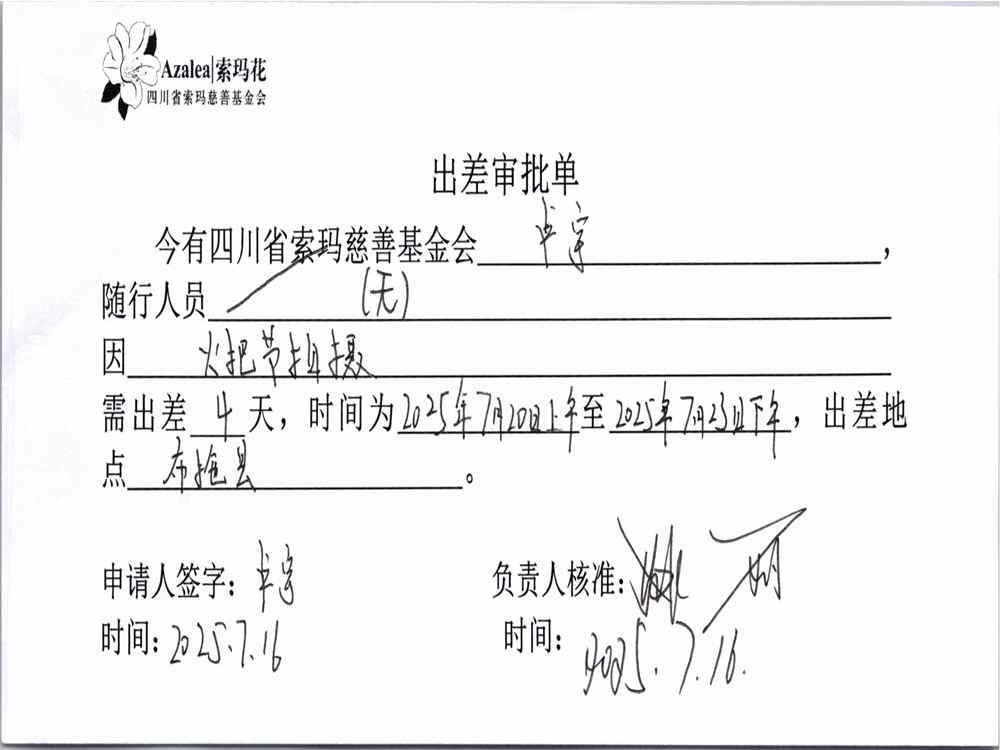 Azalea|索玛花
四川省索玛慈善基金会
出差审批单
今有四川省索玛慈善基金会 卢宇 ，
随行人员 (无)
因 火把节拍摄
需出差 4 天，时间为2025年7月20日上午至2025年7月23日下午，出差地
点 布拖县 。
申请人签字：卢宇 负责人核准：
时间：2025.7.16 时间：2025.7.16.